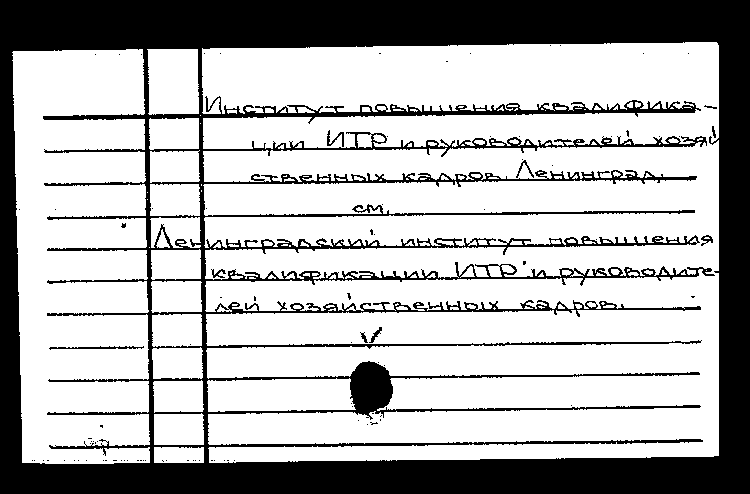 Институт повышения квалифика-
ции ИТР и руководителей хозяй
ственных кадров. Ленинград.
см.
Ленинградский институт повышения
квалификации ИТР и руководите-
лей хозяйственных кадров.